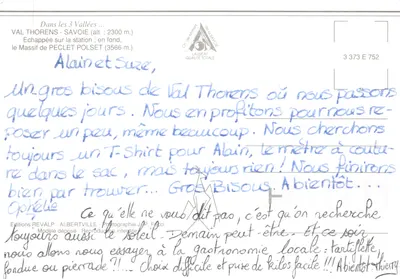 Dans les 3 Vallées...
VAL THORENS - SAVOIE (alt : 2300 m.)
Echappée sur la station ; en fond,
le Massif de PECLET POLSET (3566 m.)
3 373 E 752
Alain et Suze,
Un gros bisous de Val Thorens où nous passons
quelques jours. Nous en profitons pour nous re-
poser un peu, même beaucoup. Nous cherchons
toujours un T-Shirt pour Alain, le mètre à coutu-
re dans le sac, mais toujours rien! Nous finirons
bien par trouver... Gros Bisous. A bientôt...
Ophélie
Editions REVALP - ALBERTVILLE
Ce qu'elle ne vous dit pas, c'est qu'on recherche
toujours aussi le soleil. Demain peut-être. Et ce soir
nous allons nous essayer à la gastronomie locale: tartiflette,
fondue ou pierrade?!... Choix difficile et prise de kilos facile!!! A bientôt. Thierry